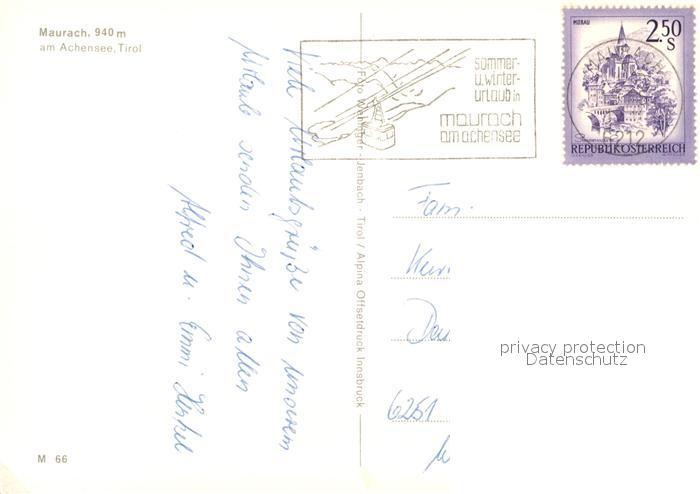 Maurach, 940 m
am Achensee, Tirol
Viele Urlaubsgrüße von unserem
Urlaub senden Ihnen allen
Alfred u. Emmi Henkel
M 66
Foto Jenbach - Tirol / Alpina Offsetdruck Innsbruck
sommer-
u. winter-
urlaub in
maurach
am achensee
MURAU
2.50
S
MAURACH
6212
REPUBLIK ÖSTERREICH
Fam.
6251
privacy protection
Datenschutz